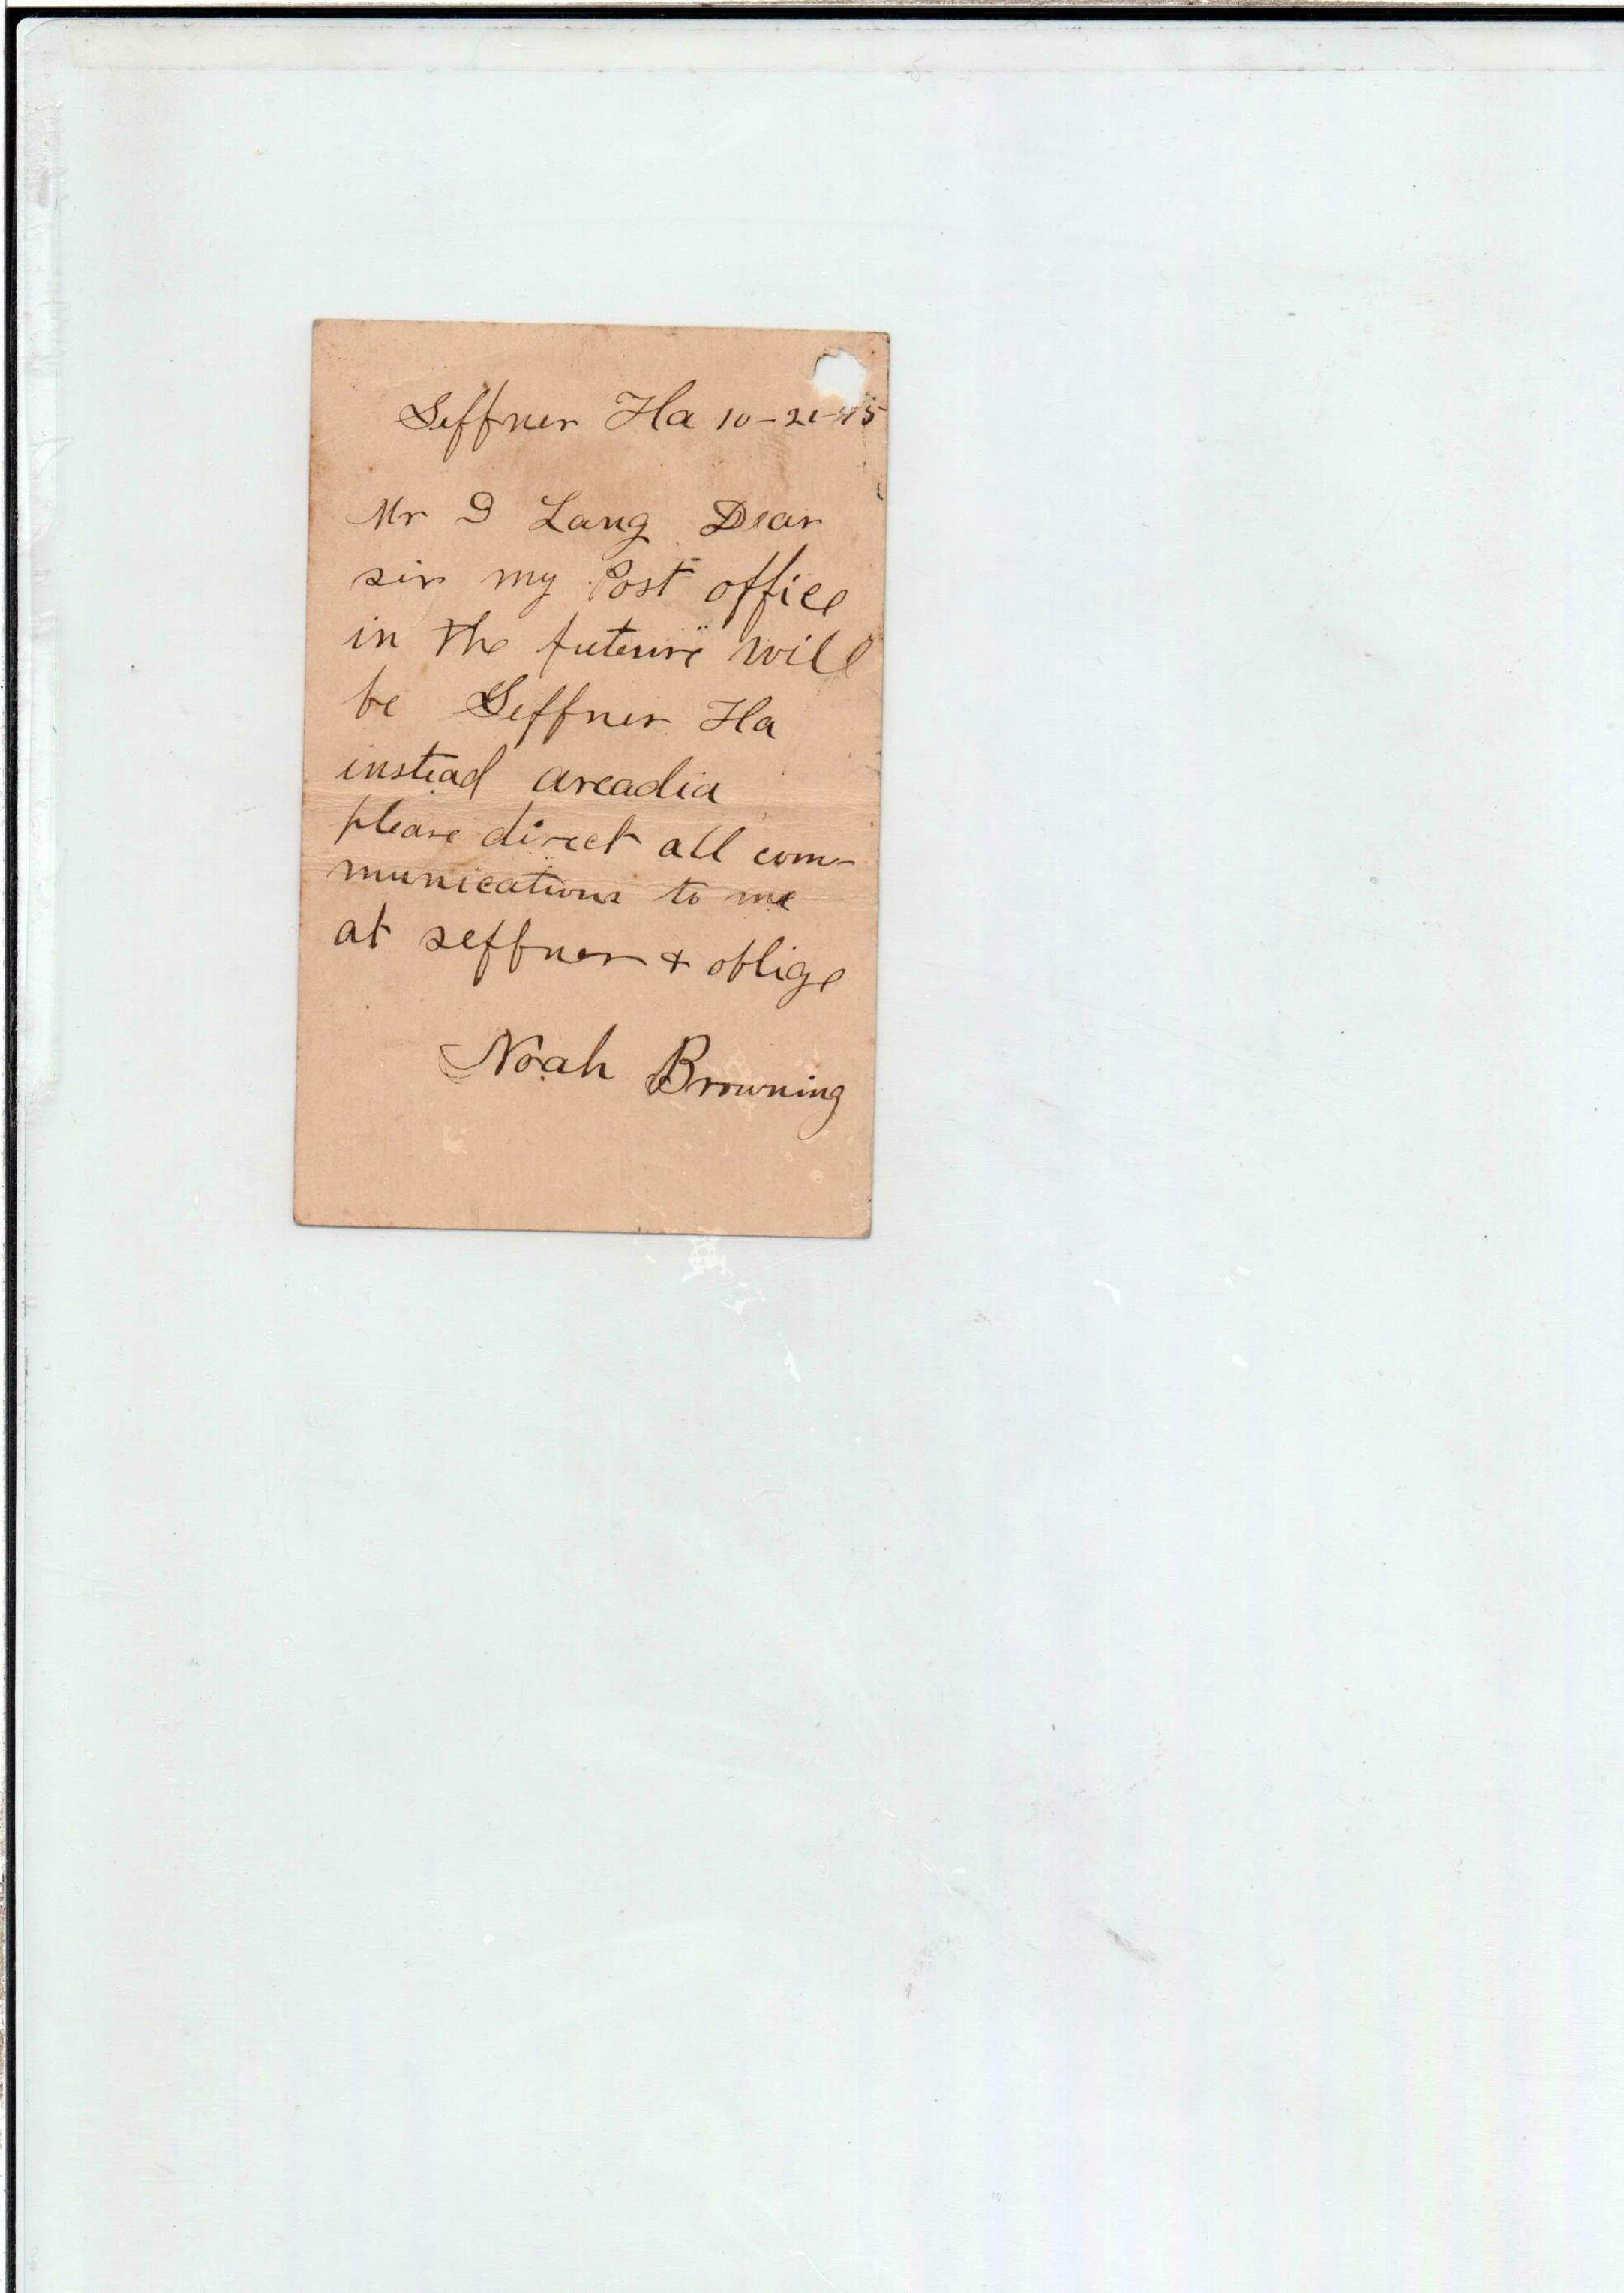 Seffner Fla 10-21-95
Mr D Lang Dear
sir my Post office
in the futeure will
be Seffner Fla
instead arcadia
please direct all com-
munications to me
at seffner & oblige
Noah Browning